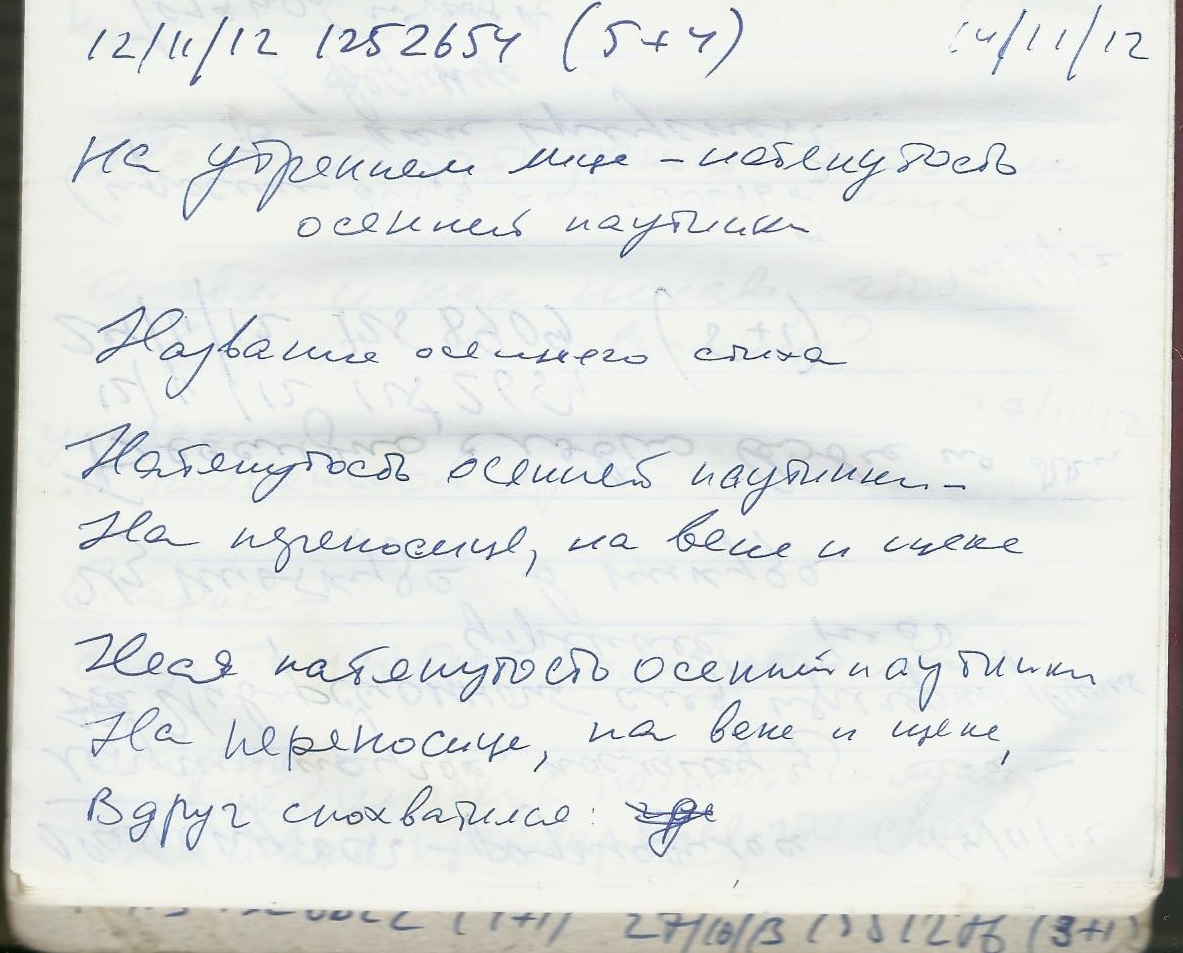 12/11/12 1252654 (5+4) 14/11/12
На утреннем лице – натянутость
осенней паутинки
Название осеннего стиха
Натянутость осенней паутинки –
На переносице, на веке и щеке
Неся натянутость осенней паутинки
На переносице, на веке и щеке,
Вдруг спохватился:
(1+1) 27/10/13 (3+1)